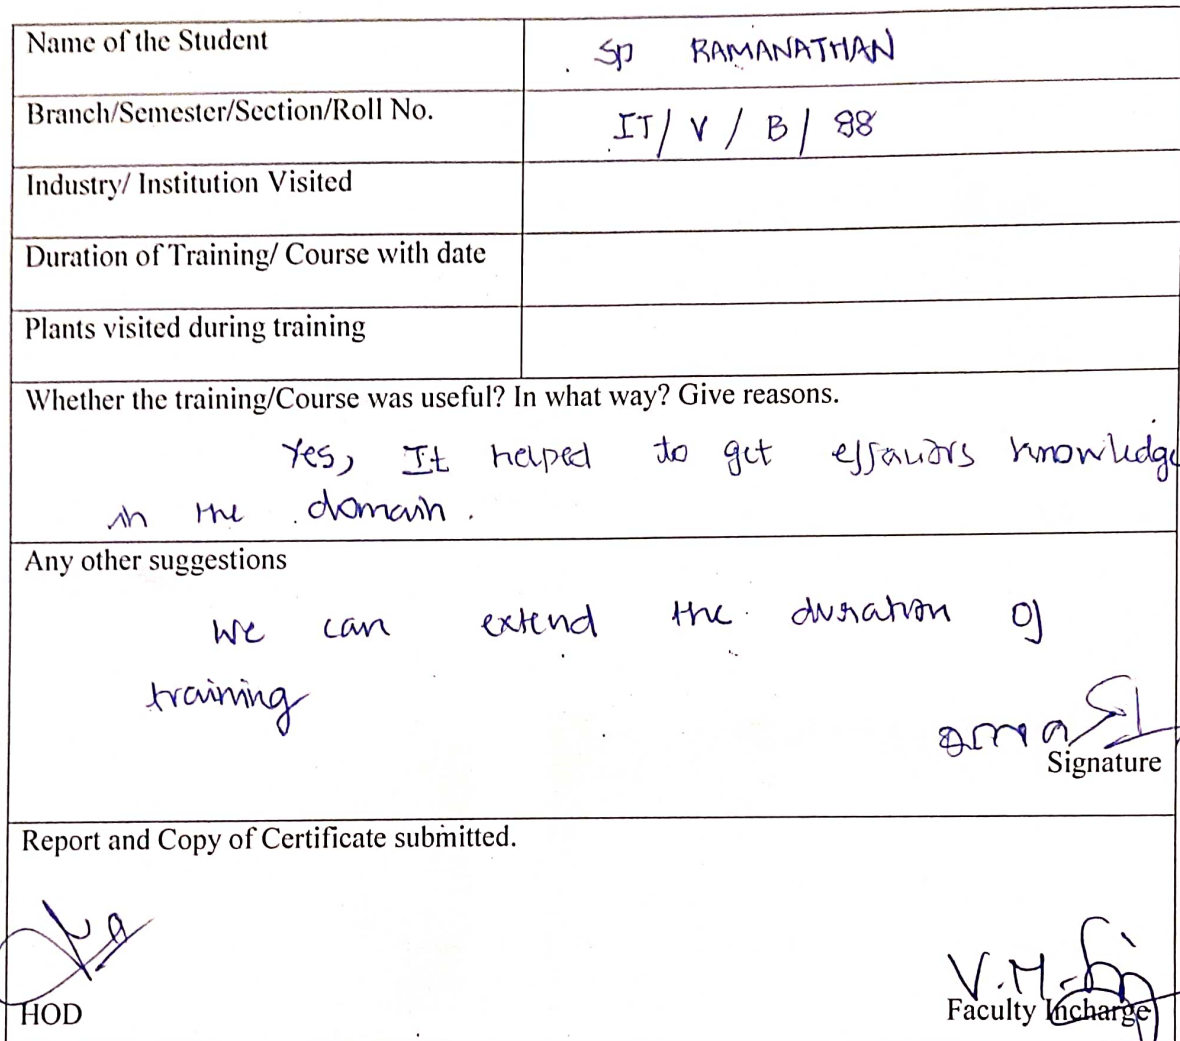 Name of the Student
SP RAMANATHAN
Branch/Semester/Section/Roll No.
IT/ V / B / 98
Industry/ Institution Visited
Duration of Training/ Course with date
Plants visited during training
Whether the training/Course was useful? In what way? Give reasons.
Yes, It helped to get knowledge
in the domain.
Any other suggestions
We can extend the duration of
training
Signature
Report and Copy of Certificate submitted.
V.M.
HOD
Faculty Incharge